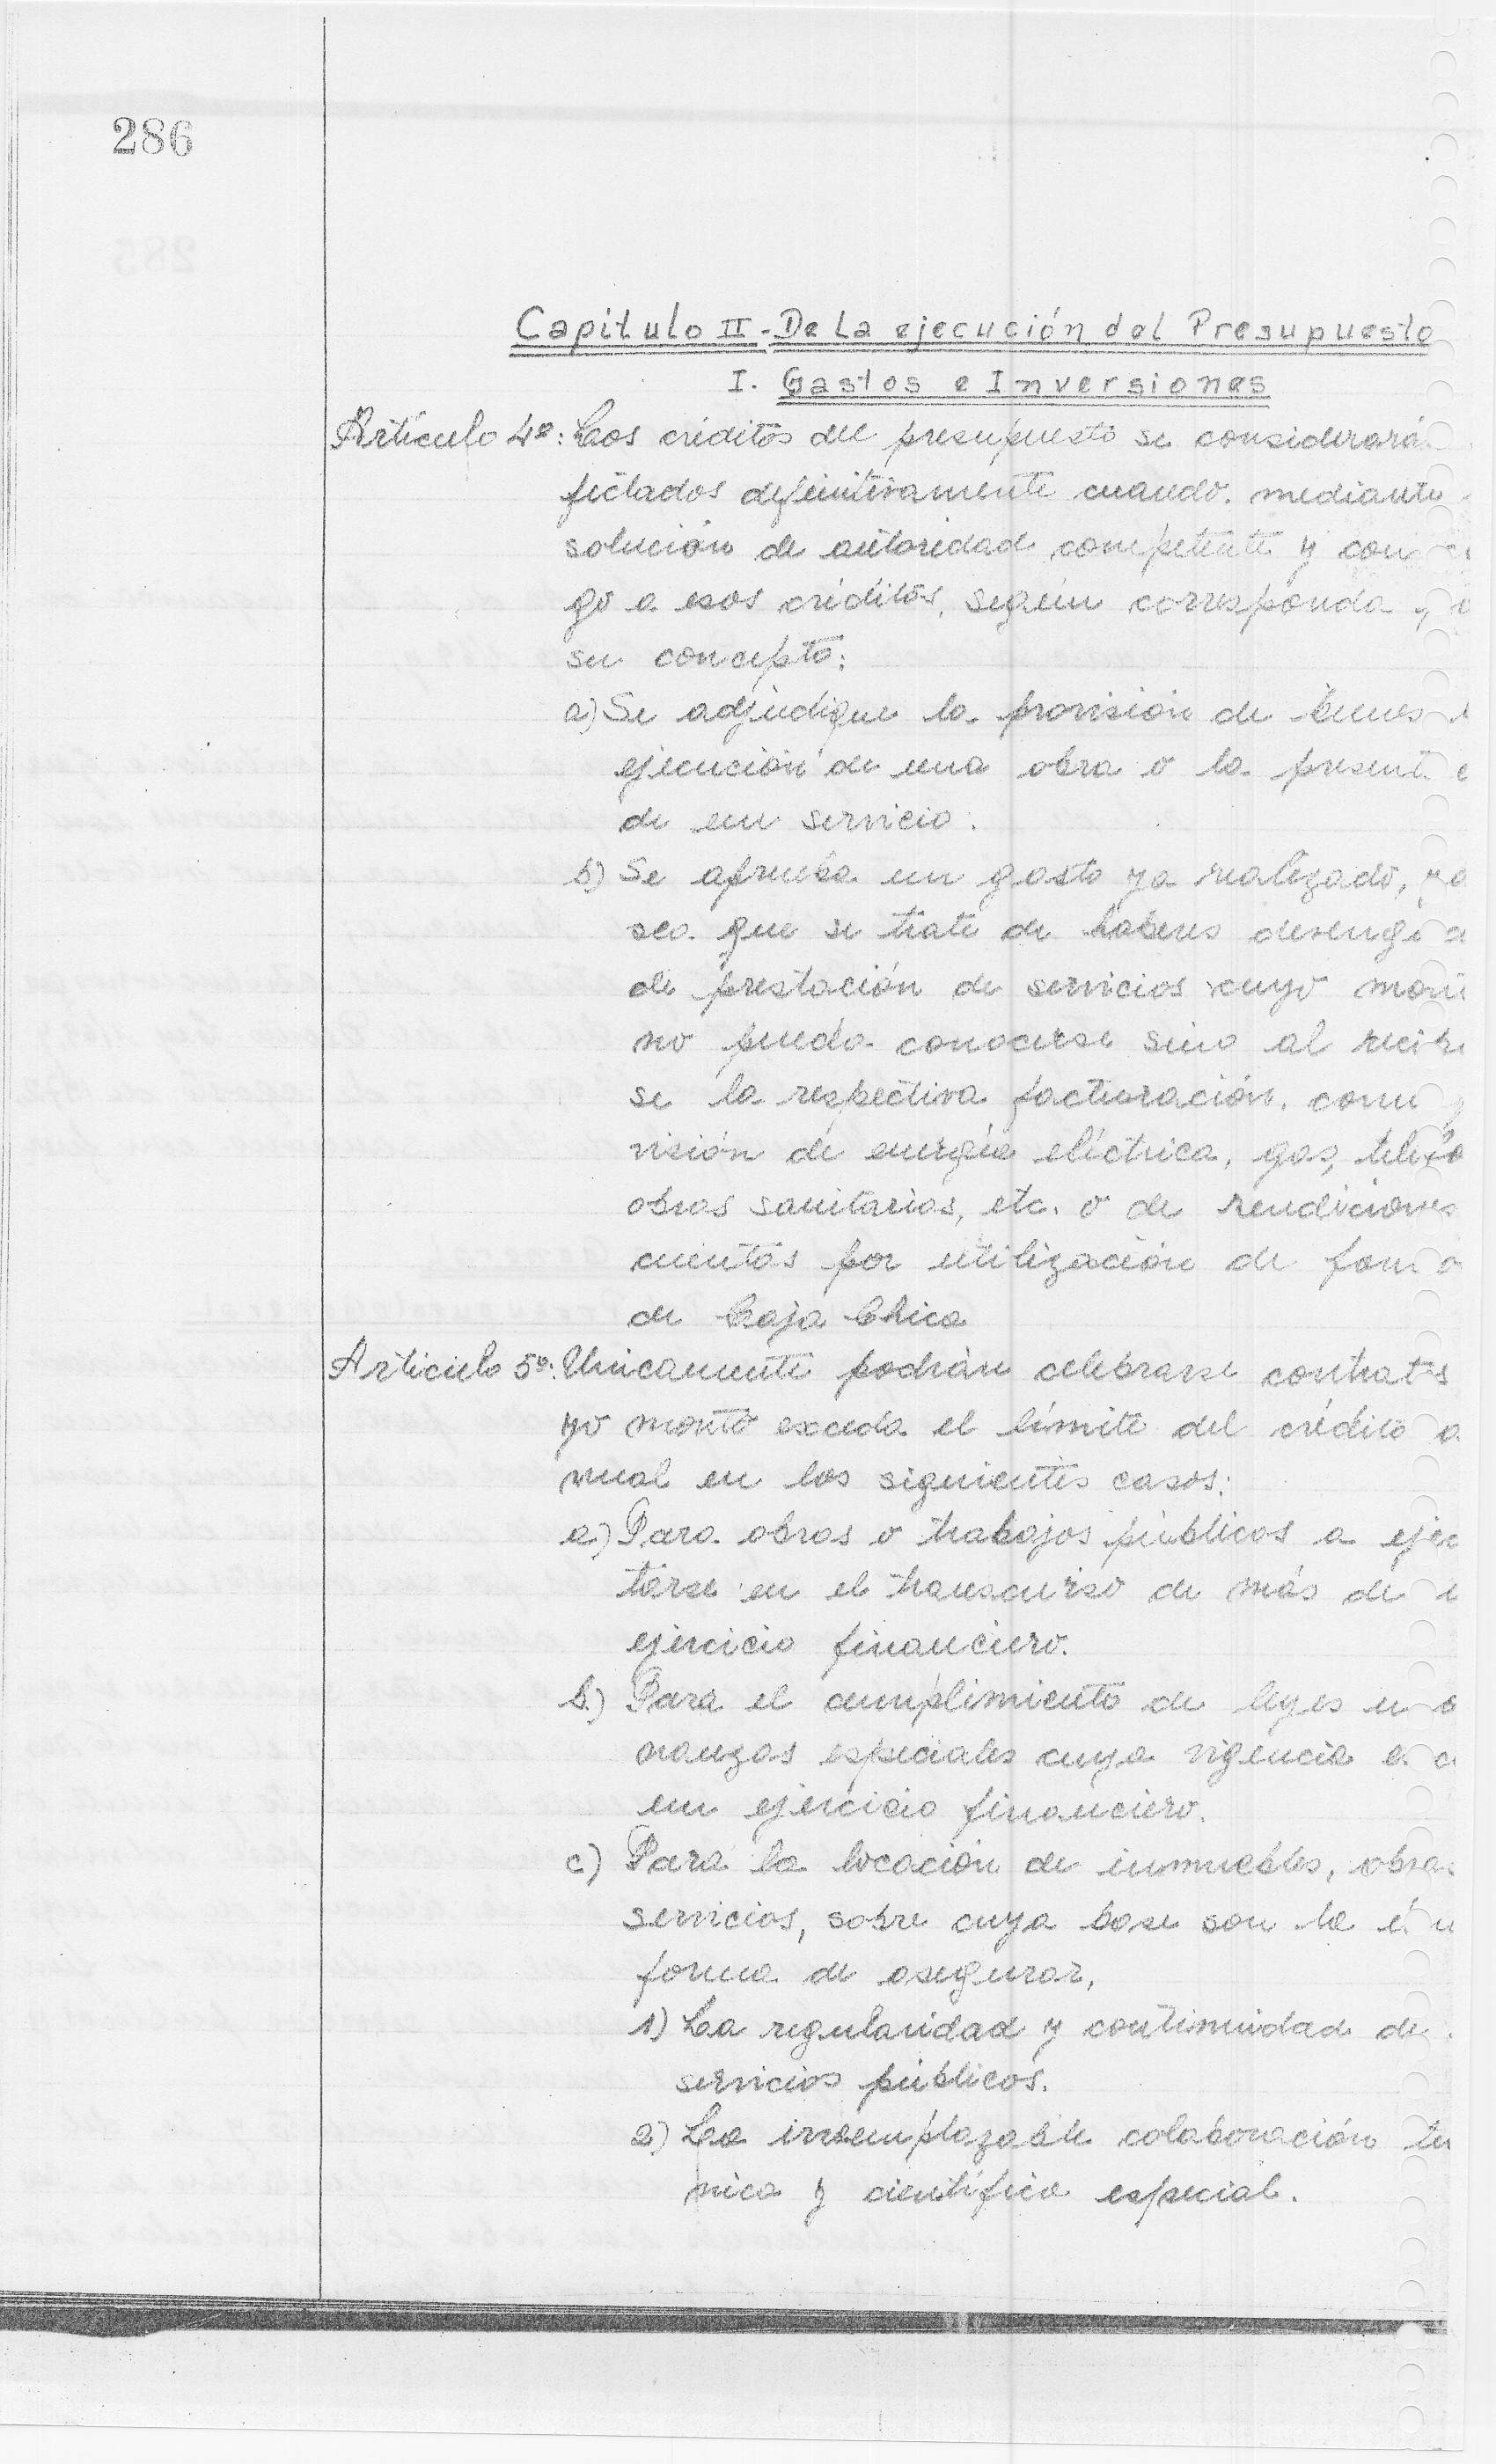 286
Capítulo II - De La ejecución del Presupuesto
I. Gastos e Inversiones
Artículo 4º: Los créditos del presupuesto se considerará
fectados definitivamente cuando, mediante
solución de autoridad competente y con
go a esos créditos, según corresponda
su concepto:
a) Se adjudique la provisión de bienes
ejecución de una obra o la
de un servicio.
b) Se aprueba un gasto ya realizado, ya
sea que se trate de haberes
de prestación de servicios cuyo
no pueda conocerse sino al
se la respectiva facturación, como
visión de energía eléctrica, gas,
obras sanitarias, etc. o de rendiciones
cuentas por utilización de
de Caja Chica
Artículo 5º: Unicamente podrán celebrarse contratos
yo monto exceda el límite del crédito a
nual en los siguientes casos:
a) Para obras o trabajos públicos a ejec
tarse en el transcurso de más de
ejercicio financiero.
b) Para el cumplimiento de leyes u o
nanzas especiales cuya vigencia
un ejercicio financiero.
c) Para la locación de inmuebles, obras
servicios, sobre cuya base son la
forma de asegurar,
1) La regularidad y continuidad de
servicios públicos.
2) La irremplazable colaboración
nica y científica especial.